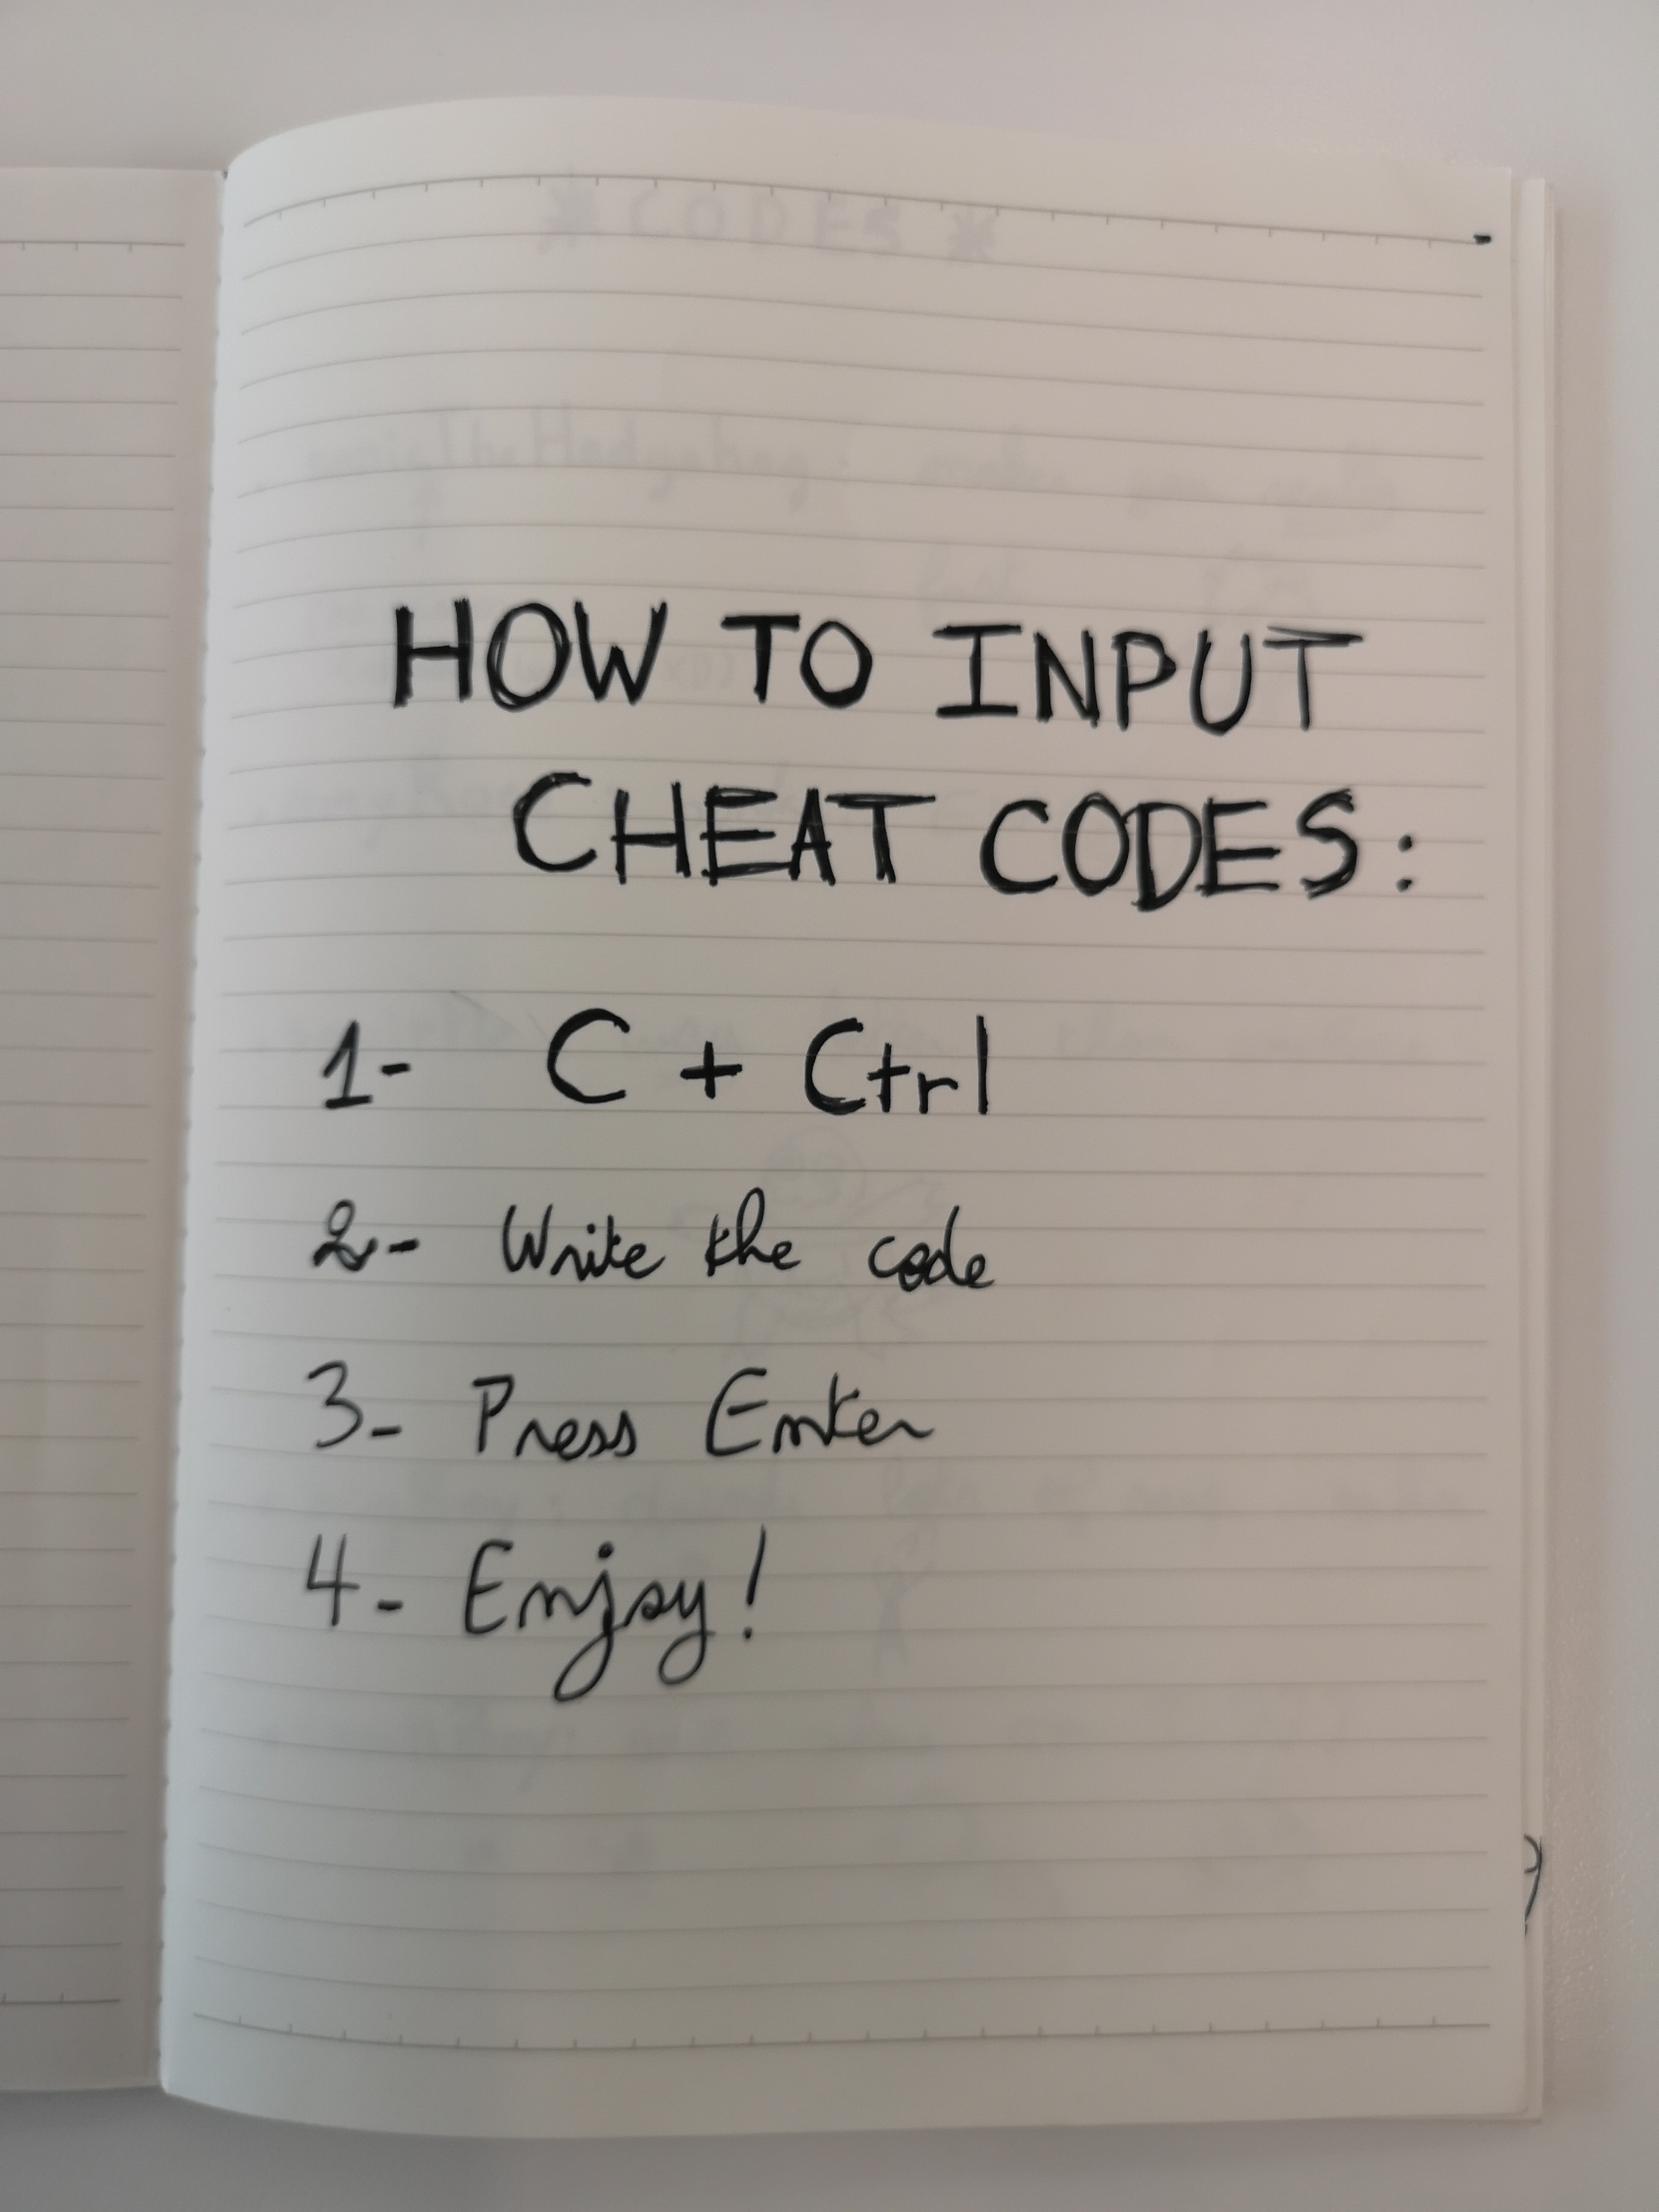 * CODES *
HOW TO INPUT
CHEAT CODES:
1- C + Ctrl
2- Write the code
3- Press Enter
4- Enjoy!